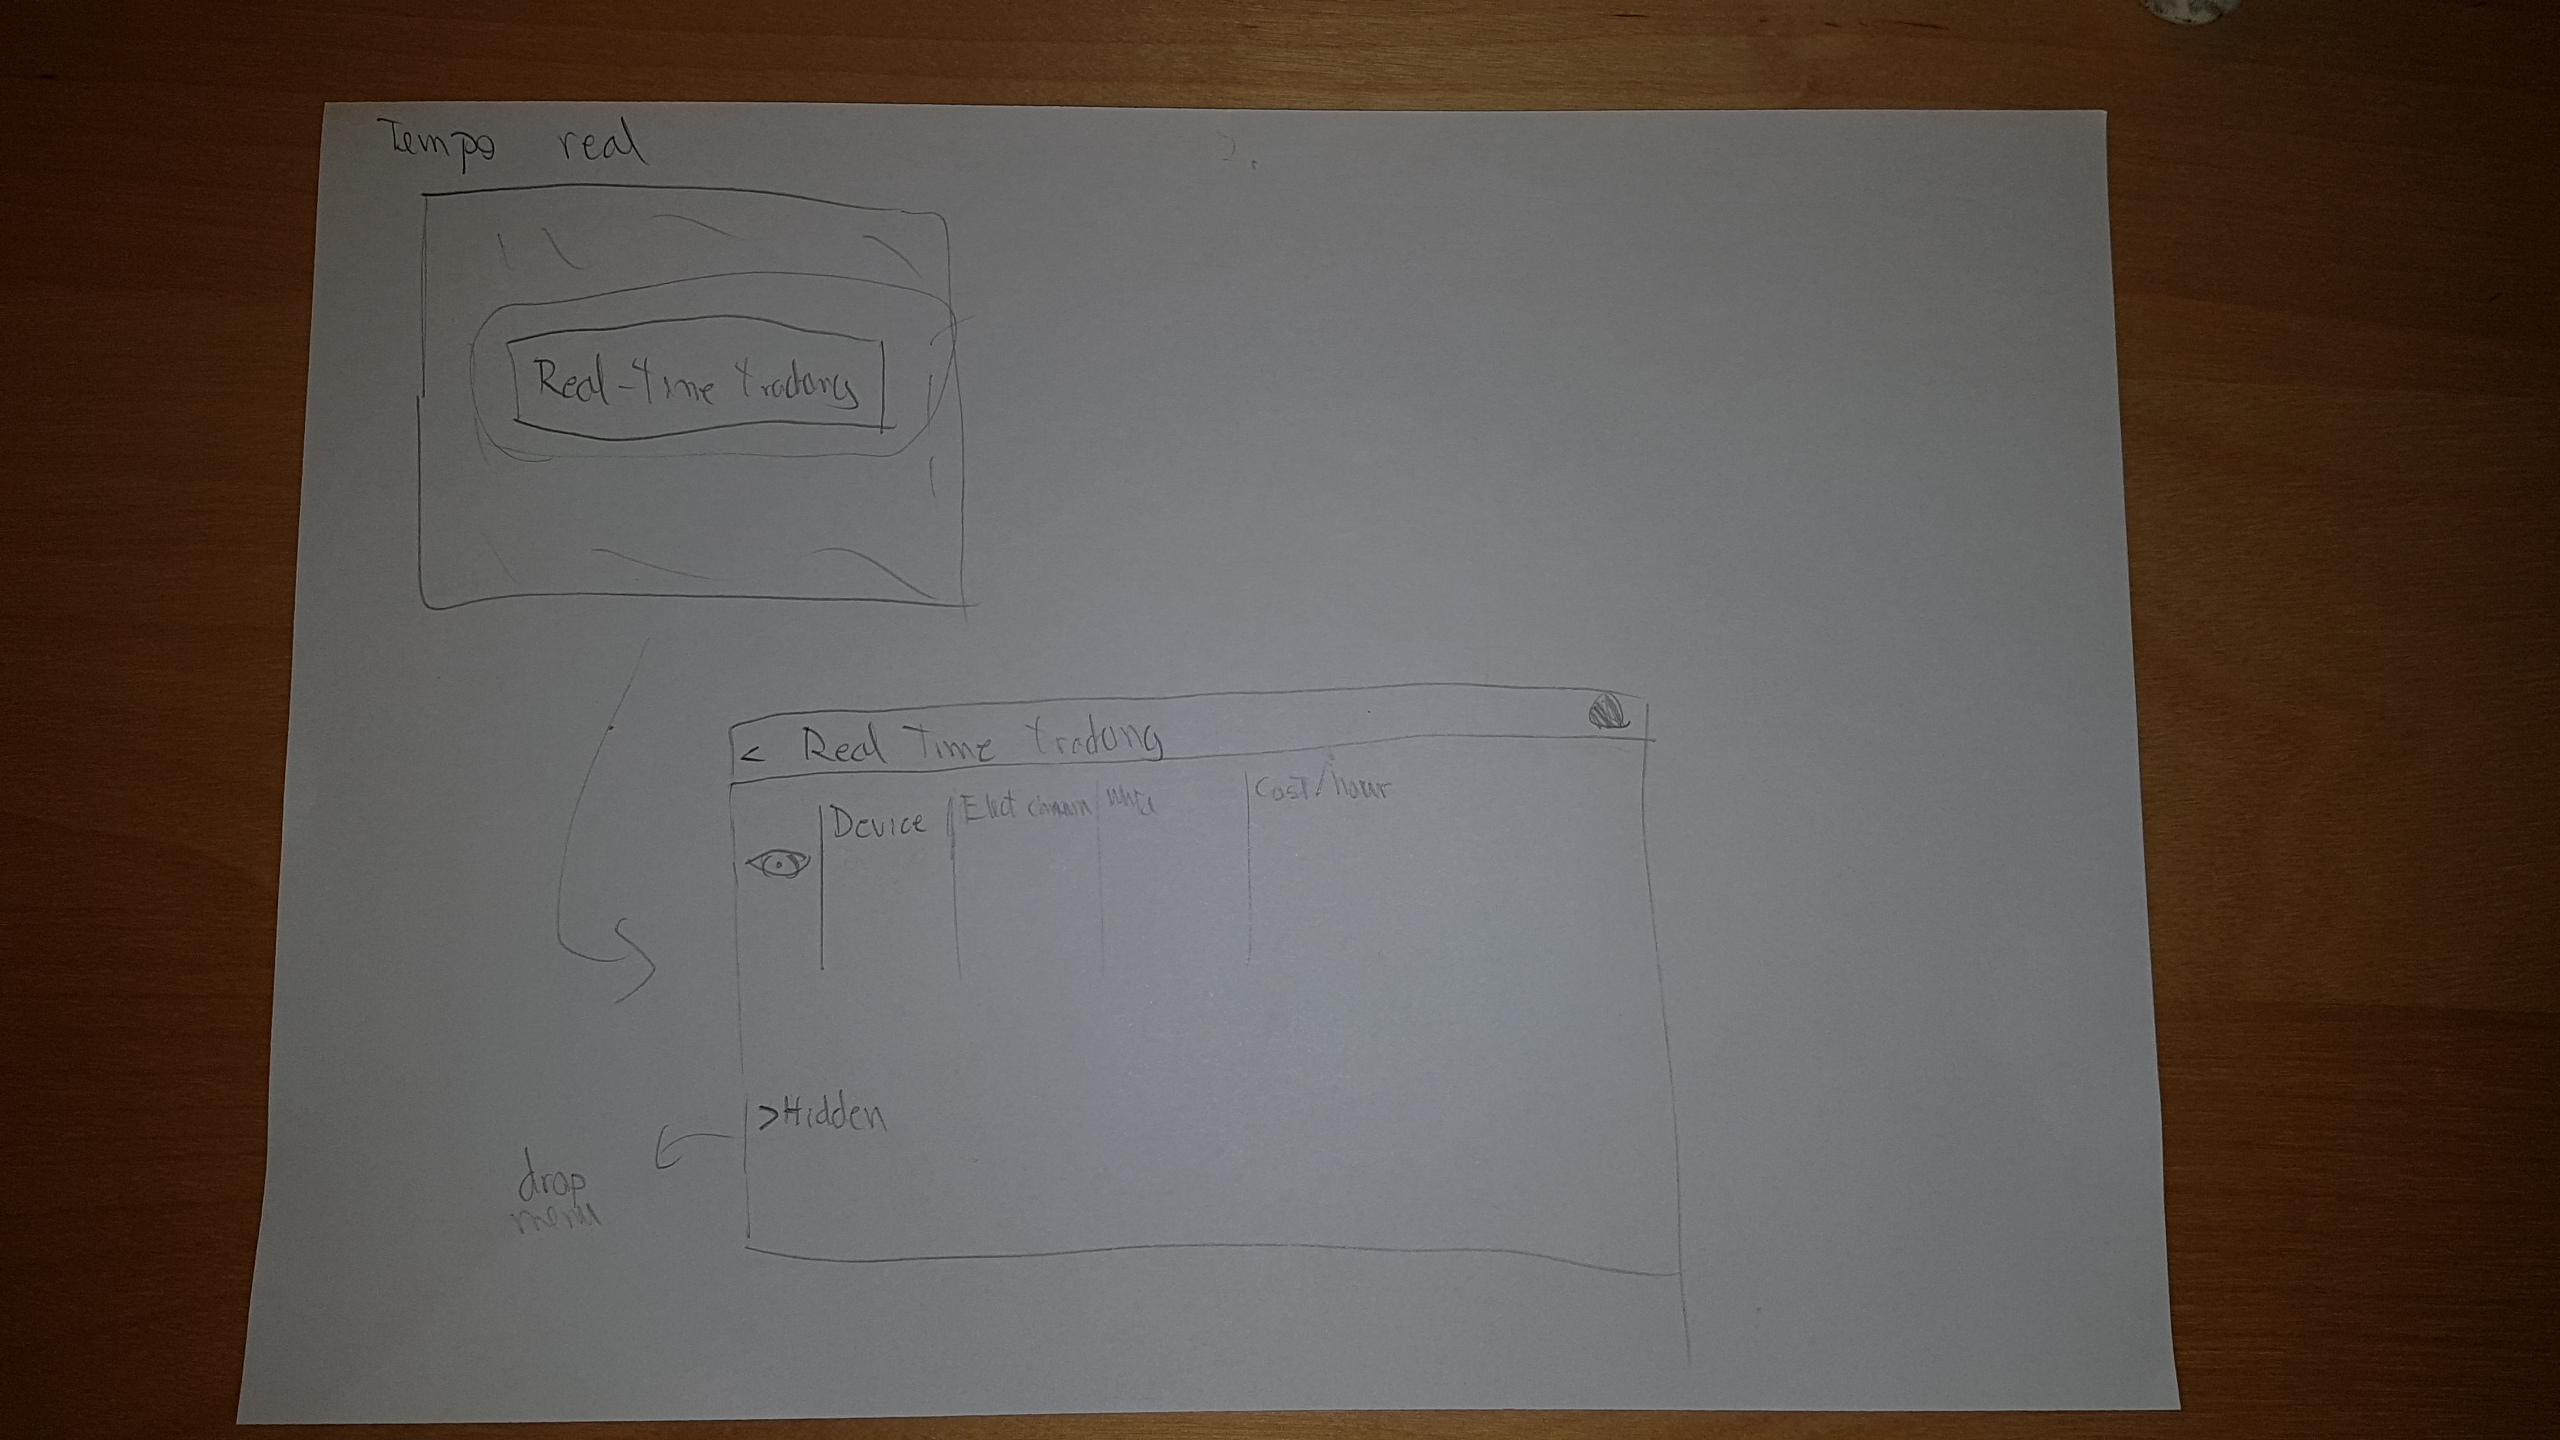 Tempo real
Real-Time tradong
< Real Time tradong
Device
Elect
Cost/hour
>Hidden
drop
menu